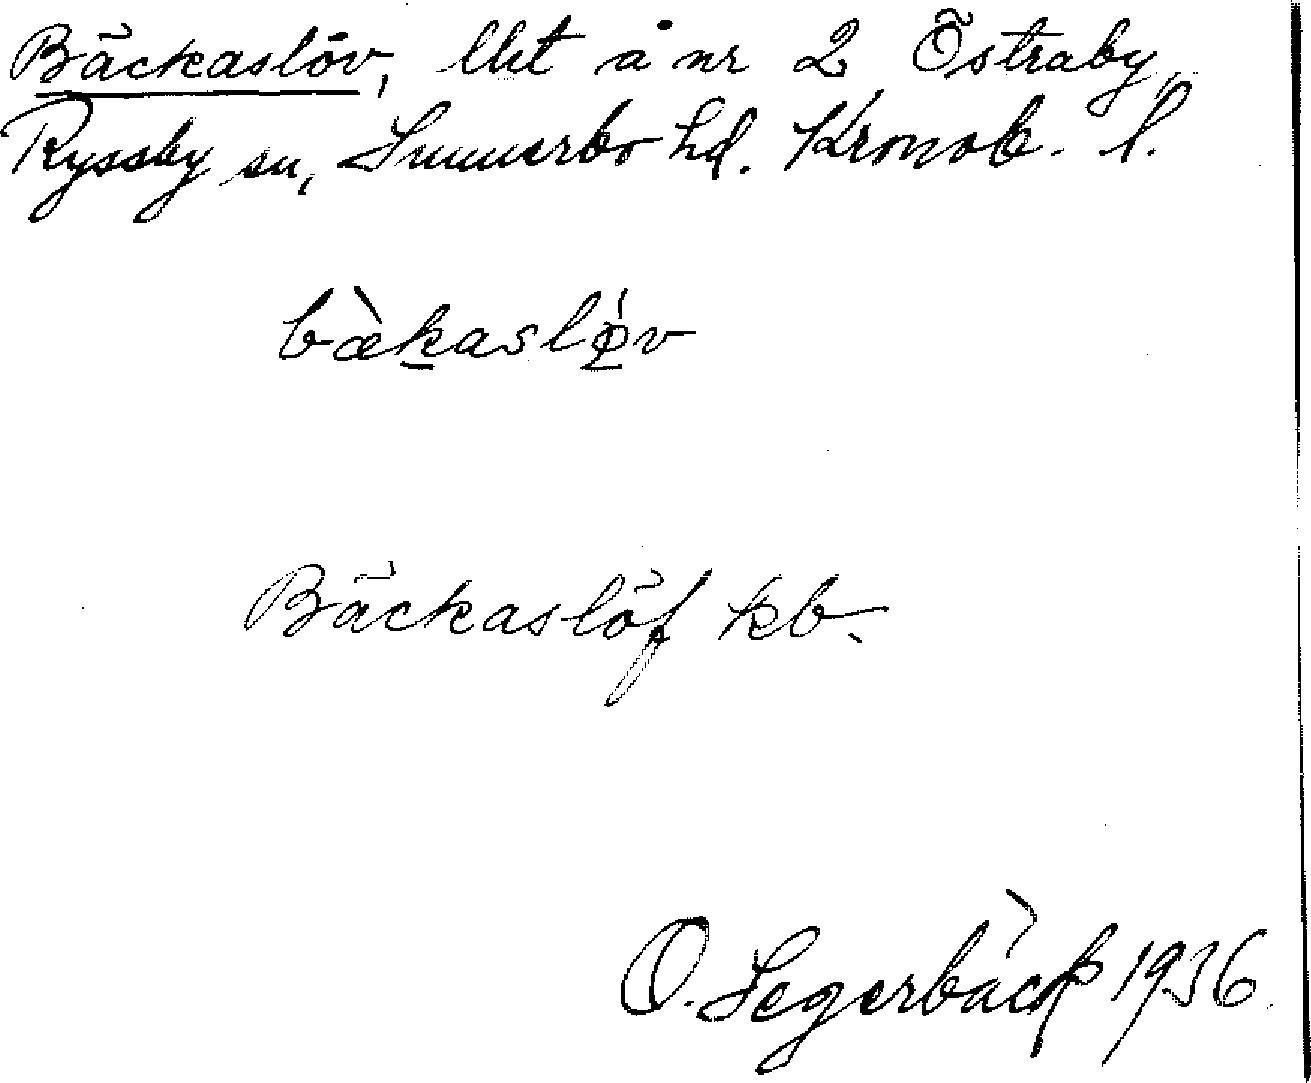 Bäckaslöv, lht å nr 2 Östraby,
Ryssby sn, Sunnerbo hd. Kronob. l.
bæ̀kaslǿv
Bäckaslöf kb.
O. Segerbäck 1936